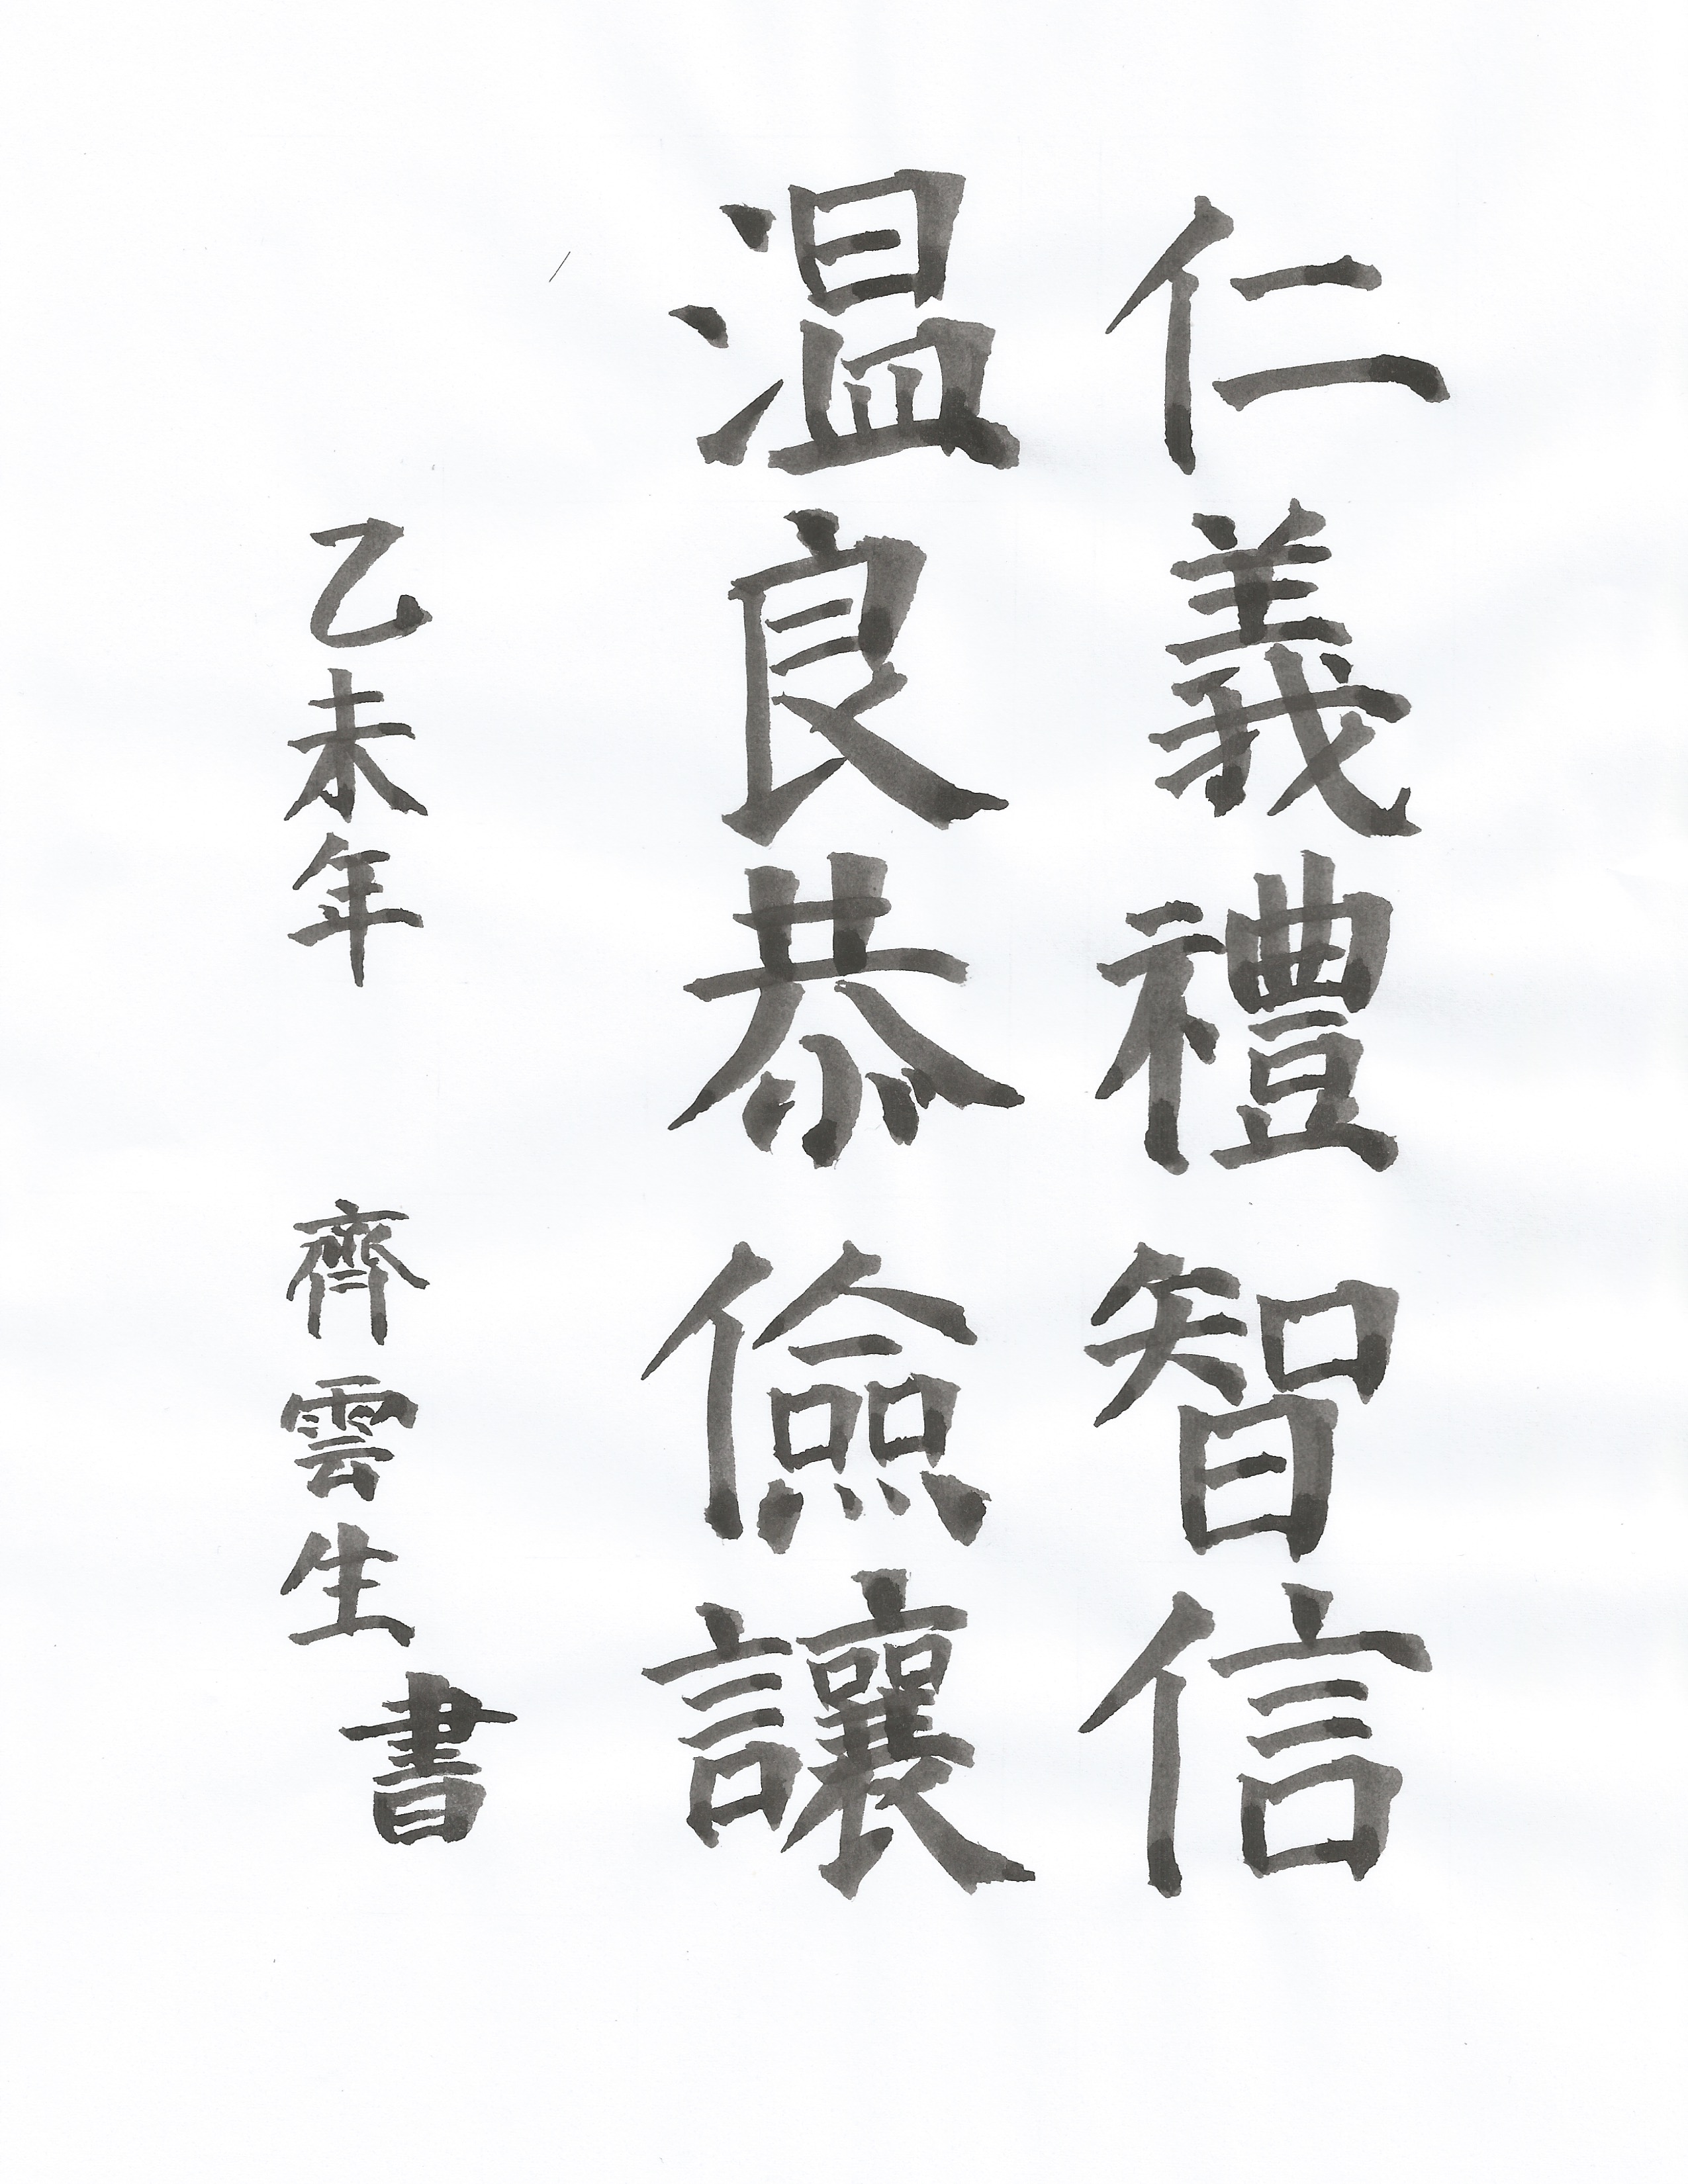 仁義禮智信
温良恭儉讓
乙未年 齊雲生書